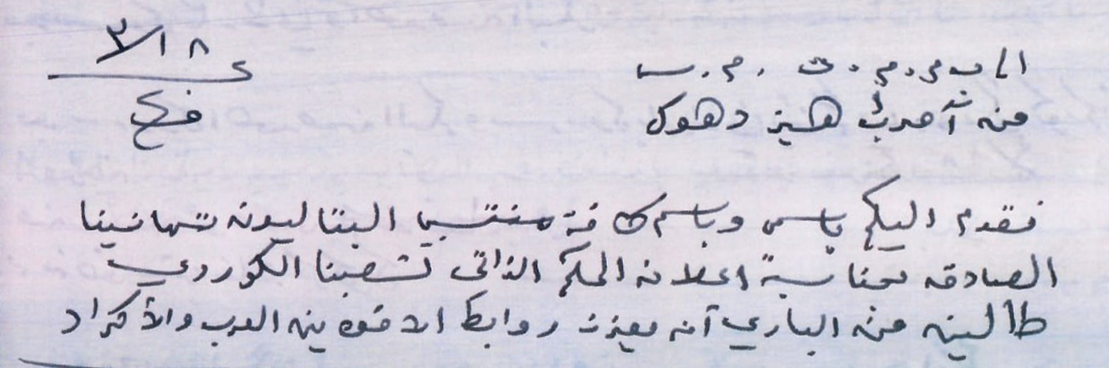 ٣/١٨
الى ب . م . م . ت . م . ب
من آمرية هيز دهوك
نقدم اليكم باسمي وباسم كافة منتسبي البتاليون تهانينا
الصادقه بمناسبة اعلان الحكم الذاتى لشعبنا الكوردي
طالبين من الباري أن يعزز روابط الاخوه بين العرب والأكراد